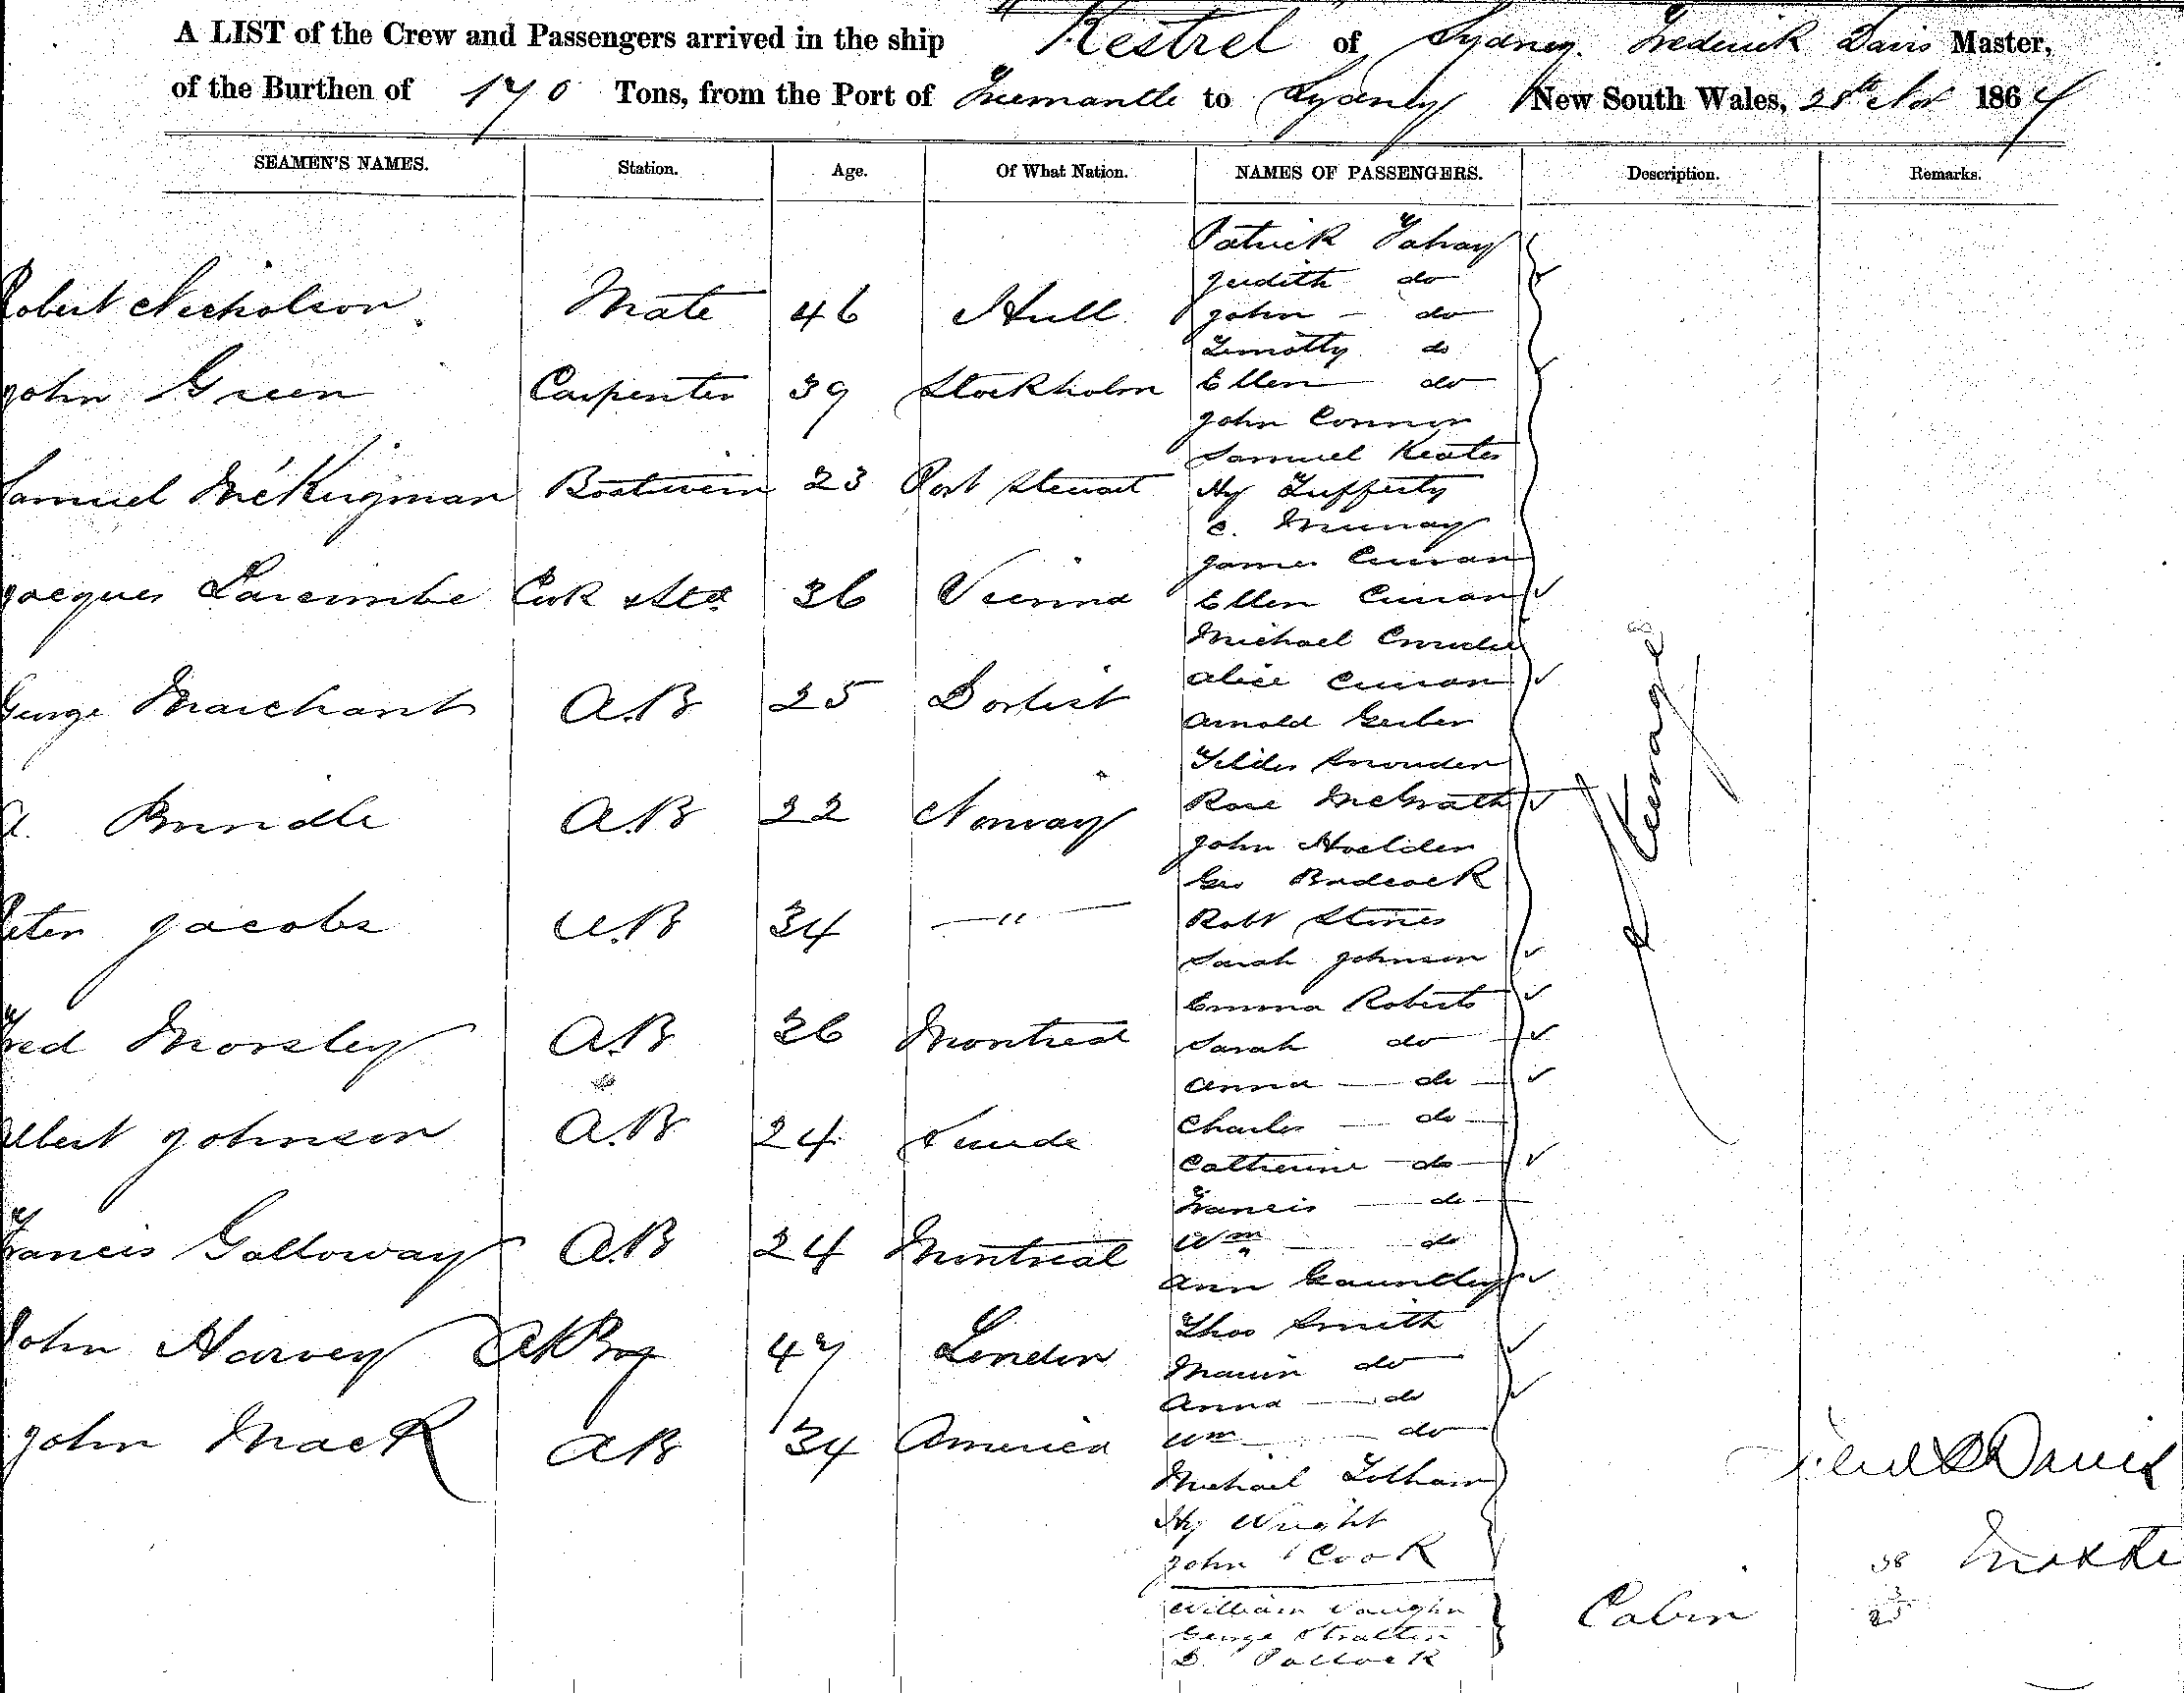 A LIST of the Crew and Passengers arrived in the ship Kestrel of Sydney. Frederick Davis Master,
of the Burthen of 170 Tons, from the Port of Freemantle to Sydney New South Wales, 28th Nov 1864
SEAMEN'S NAMES. Station. Age. Of What Nation. NAMES OF PASSENGERS. Description. Remarks.
Robert Nicholson Mate 46 Hull
John Green Carpenter 39 Stockholm
Samuel Boatswein 23 Port Stewart
Jacques Larcombe Cook & Std 36 Vienna
George Marchant A.B 25
A. Brindle A.B 22 Norway
Peter Jacobs A.B 34 — " —
Fred Morsley A.B 26 Montreal
Albert Johnson A.B 24
Francis Galloway A.B 24 Montreal
John Harvey 47 London
John Mack AB 34 America
Patrick Fahay
Judith do
John - do
Timothy do
Ellen do
John Connor
Samuel Keates
Hy
C. Murray
James Curran
Ellen Curran
Michael
Alice Curran
Arnold Gerber
Snowden
Rose McGrath
John Holden
Geo Badcock
Robt Stones
Sarah Johnson
Emma Roberts
Sarah do
Anna — do
Charles — do
Catherine do
Francis — do
Wm do
Ann
Thos Smith
do
Anna — do
Wm do
Michael
Hy Wright
John Cook
Steerage
William Vaughn
George Stratten
D. Pollock
Cabin
38
3
Davis